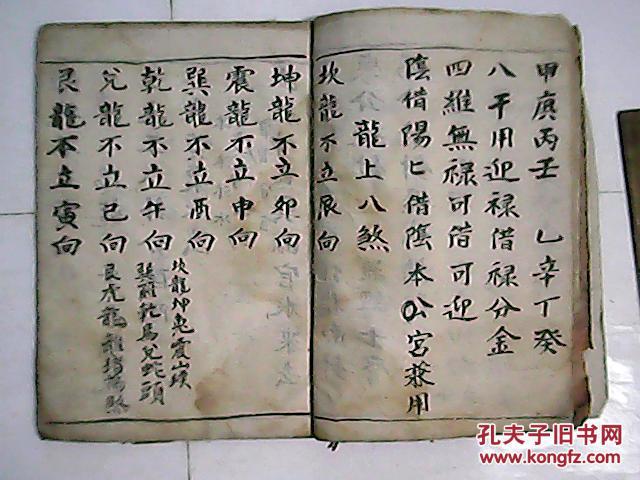 甲庚丙壬 乙辛丁癸
八干用迎禄借禄分金
四維無禄可借可迎
陰借陽匕借陰本公宮兼用
龍上八煞
坎龍不立辰向
坤龍不立卯向
震龍不立申向
巽龍不立酉向
乾龍不立午向
兌龍不立巳向
艮龍不立寅向
坎龍坤兔震山猴
巽雞乾馬兌蛇頭
艮虎
孔夫子旧书网
www.kongfz.com